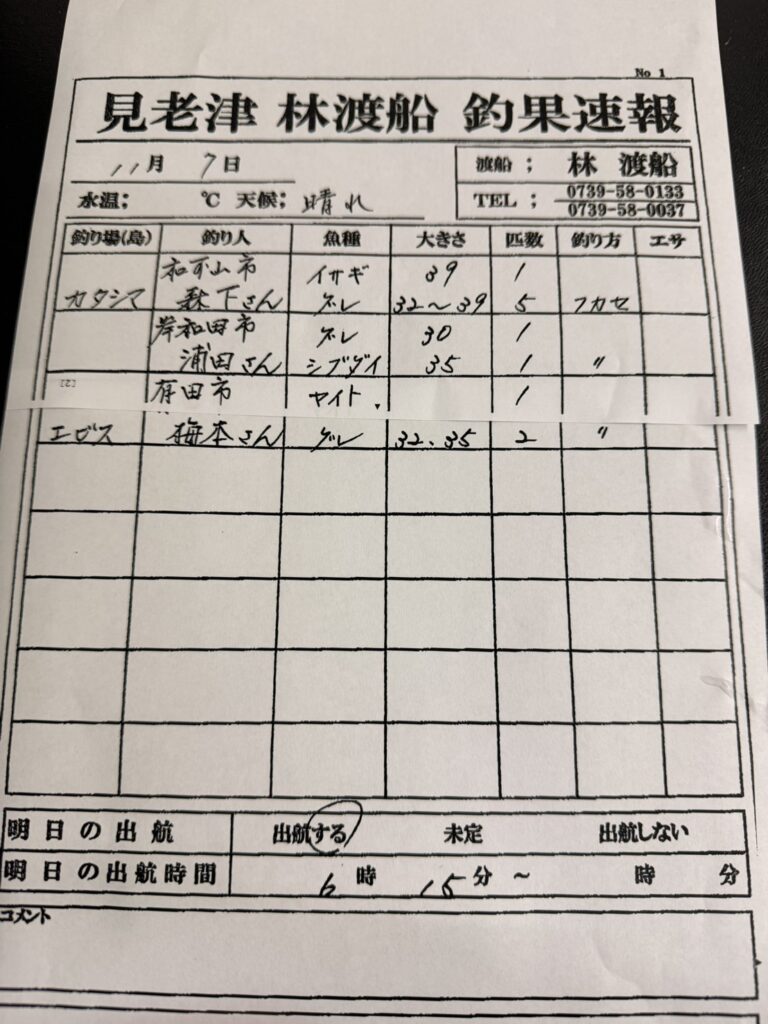 No 1
見老津 林渡船 釣果速報
11月 7日
渡船 ; 林 渡船
水温; ℃ 天候; 晴れ
TEL ; 0739-58-0133
0739-58-0037
釣り場(島) 釣り人 魚種 大きさ 匹数 釣り方 エサ
和歌山市 イサギ 39 1
カタシマ 森下さん グレ 32〜39 5 フカセ
岸和田市 グレ 30 1
浦田さん シブダイ 35 1 〃
[2]
有田市 ヤイト. 1
エビス 梅本さん グレ 32.35 2 〃
明日の出航 出航する 未定 出航しない
明日の出航時間 6時 15分 〜 時 分
コメント